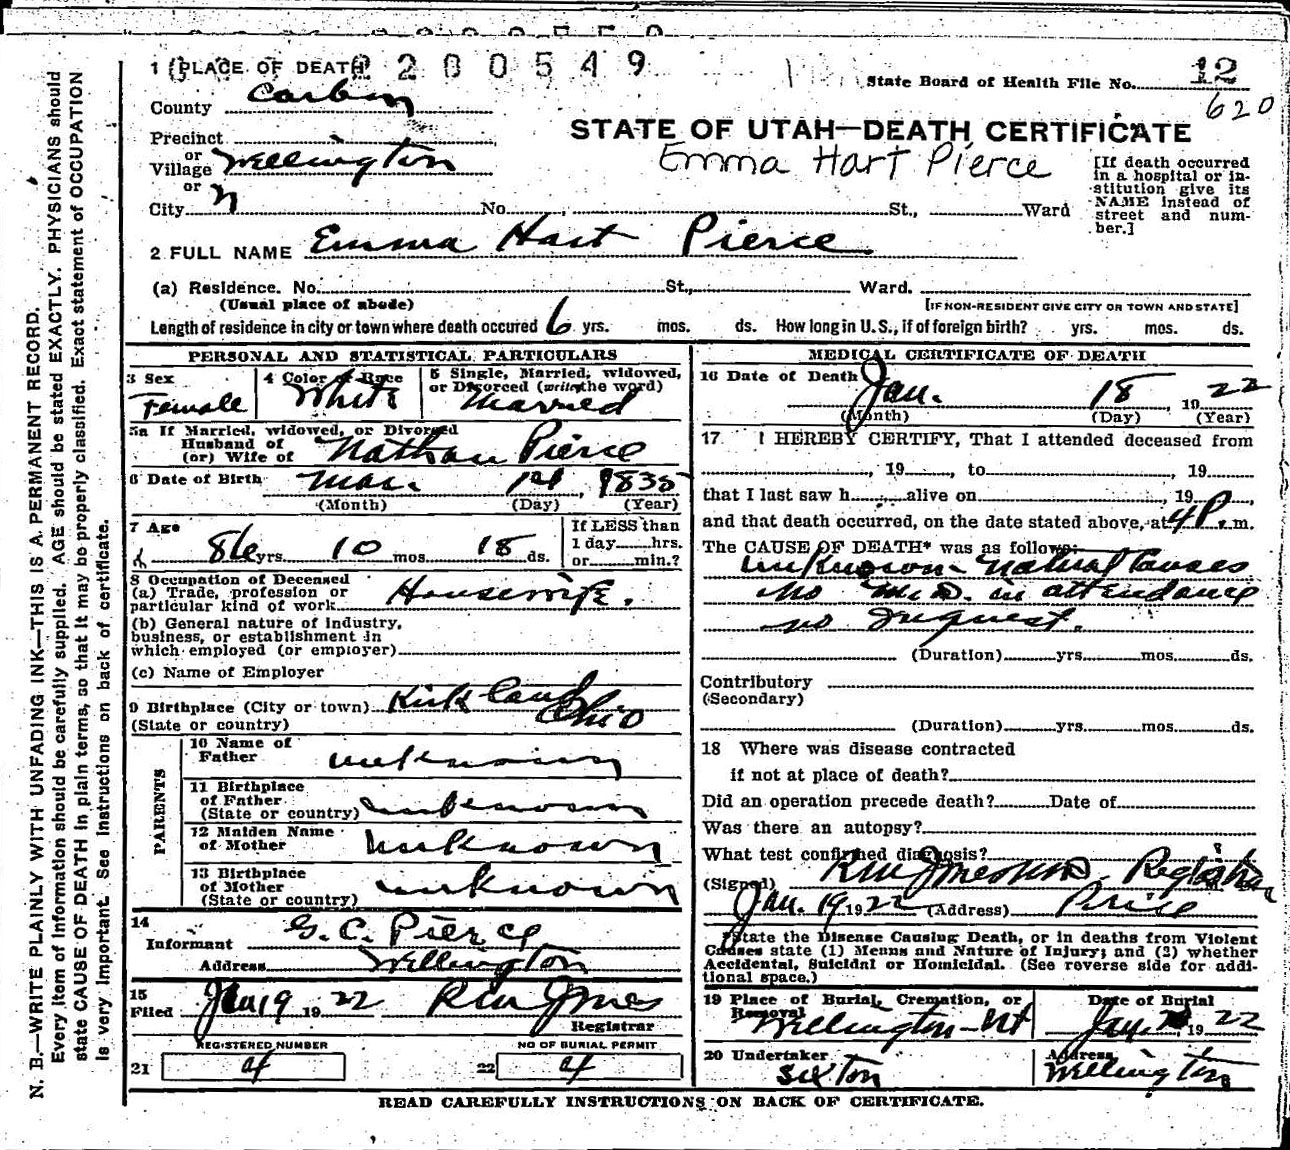 1 PLACE OF DEATH 2200549
State Board of Health File No. 12
620
County Carbon
STATE OF UTAH—DEATH CERTIFICATE
Emma Hart Pierce
Precinct
or
Village Wellington
or
City No. St., Ward
[If death occurred
in a hospital or in-
stitution give its
NAME instead of
street and num-
ber.]
2 FULL NAME Emma Hart Pierce
(a) Residence. No. St., Ward.
(Usual place of abode) [IF NON-RESIDENT GIVE CITY OR TOWN AND STATE]
Length of residence in city or town where death occured 6 yrs. mos. ds. How long in U.S., if of foreign birth? yrs. mos. ds.
PERSONAL AND STATISTICAL PARTICULARS
3 Sex
Female
4 Color or Race
White
5 Single, Married, widowed,
or Divorced (write the word)
Married
5a If Married, widowed, or Divorced
Husband of
(or) Wife of Nathan Pierce
6 Date of Birth Mar. 1835
(Month) (Day) (Year)
7 Age
86 yrs. 10 mos. 18 ds.
If LESS than
1 day hrs.
or min.?
8 Occupation of Deceased
(a) Trade, profession or
particular kind of work Housewife.
(b) General nature of industry,
business, or establishment in
which employed (or employer)
(c) Name of Employer
9 Birthplace (City or town) Kirkland
(State or country) Ohio
PARENTS
10 Name of
Father unknown
11 Birthplace
of Father
(State or country) unknown
12 Maiden Name
of Mother unknown
13 Birthplace
of Mother
(State or country) unknown
14
Informant G. C. Pierce
Address Wellington
15
Filed Jan 19 1922 R M Jones
Registrar
REGISTERED NUMBER NO OF BURIAL PERMIT
21 4 22 4
MEDICAL CERTIFICATE OF DEATH
16 Date of Death Jan. 18, 1922
(Month) (Day) (Year)
17. I HEREBY CERTIFY, That I attended deceased from
, 19 , to , 19
that I last saw h alive on , 19 ,
and that death occurred, on the date stated above, at 4 P. m.
The CAUSE OF DEATH* was as follows:
unknown - Natural Causes
no M.D. in attendance
no Inquest.
(Duration) yrs. mos. ds.
Contributory
(Secondary)
(Duration) yrs. mos. ds.
18 Where was disease contracted
if not at place of death?
Did an operation precede death? Date of
Was there an autopsy?
What test confirmed diagnosis?
(Signed) R M Jones M.D. Registrar
Jan. 19 1922 (Address) Price
*State the Disease Causing Death, or in deaths from Violent
Causes state (1) Means and Nature of Injury; and (2) whether
Accidental, Suicidal or Homicidal. (See reverse side for addi-
tional space.)
19 Place of Burial, Cremation, or
Removal
Wellington - Ut
Date of Burial
Jan. 1922
20 Undertaker
Sexton
Address
Wellington
READ CAREFULLY INSTRUCTIONS ON BACK OF CERTIFICATE.
N. B.—WRITE PLAINLY WITH UNFADING INK—THIS IS A PERMANENT RECORD.
Every item of information should be carefully supplied. AGE should be stated EXACTLY. PHYSICIANS should
state CAUSE OF DEATH in plain terms, so that it may be properly classified. Exact statement of OCCUPATION
is very important. See instructions on back of certificate.